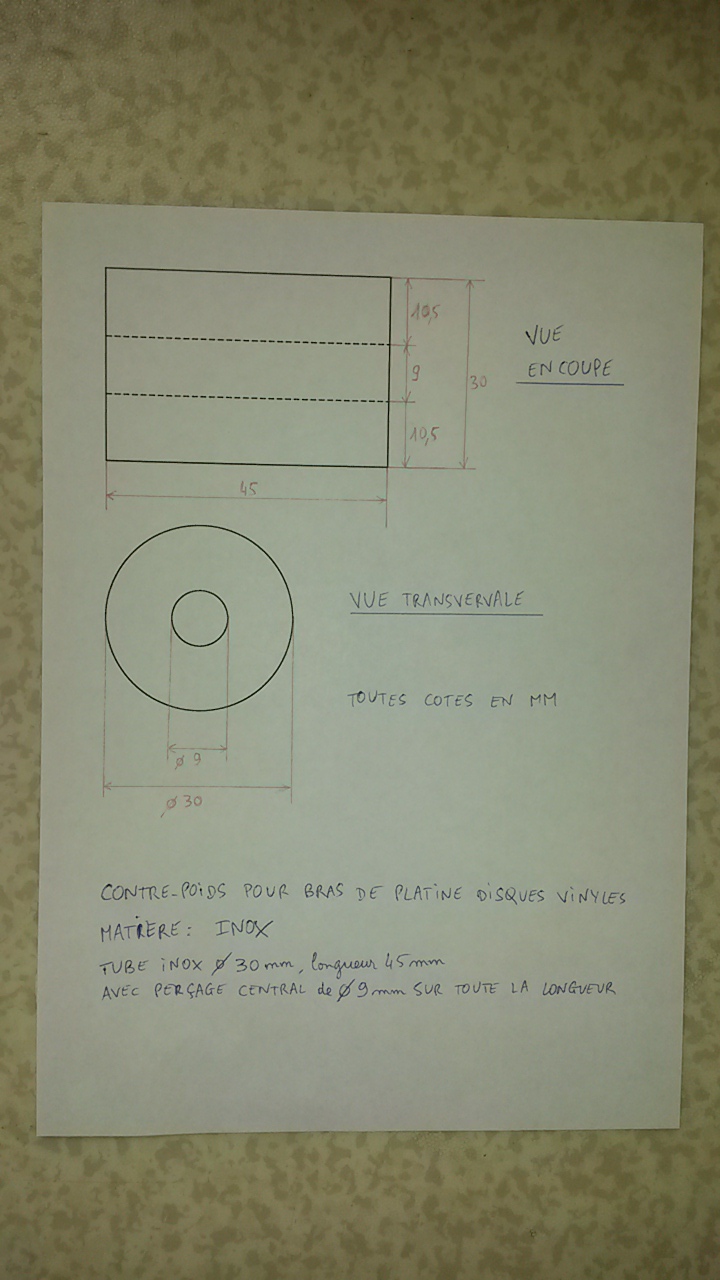 10,5
VUE
EN COUPE
9
30
10,5
45
VUE TRANSVERVALE
TOUTES COTES EN MM
ø 9
ø 30
CONTRE-POIDS POUR BRAS DE PLATINE DISQUES VINYLES
MATIERE: INOX
TUBE INOX Ø 30 mm, longueur 45 mm
AVEC PERÇAGE CENTRAL de Ø 9 mm SUR TOUTE LA LONGUEUR